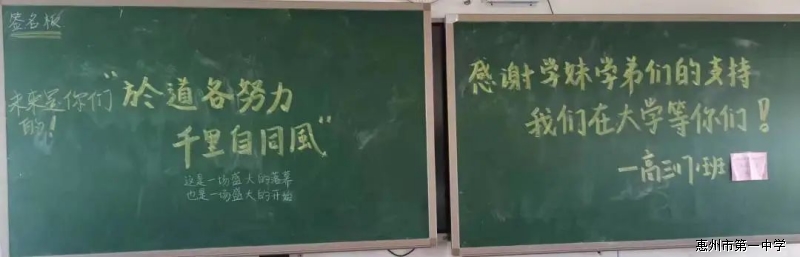 签名板
未来是你们
的！
“於道各努力
千里自同風”
这是一场盛大的落幕
也是一场盛大的开始
感谢学妹学弟们的支持
我们在大学等你们！
惠州市第一中学